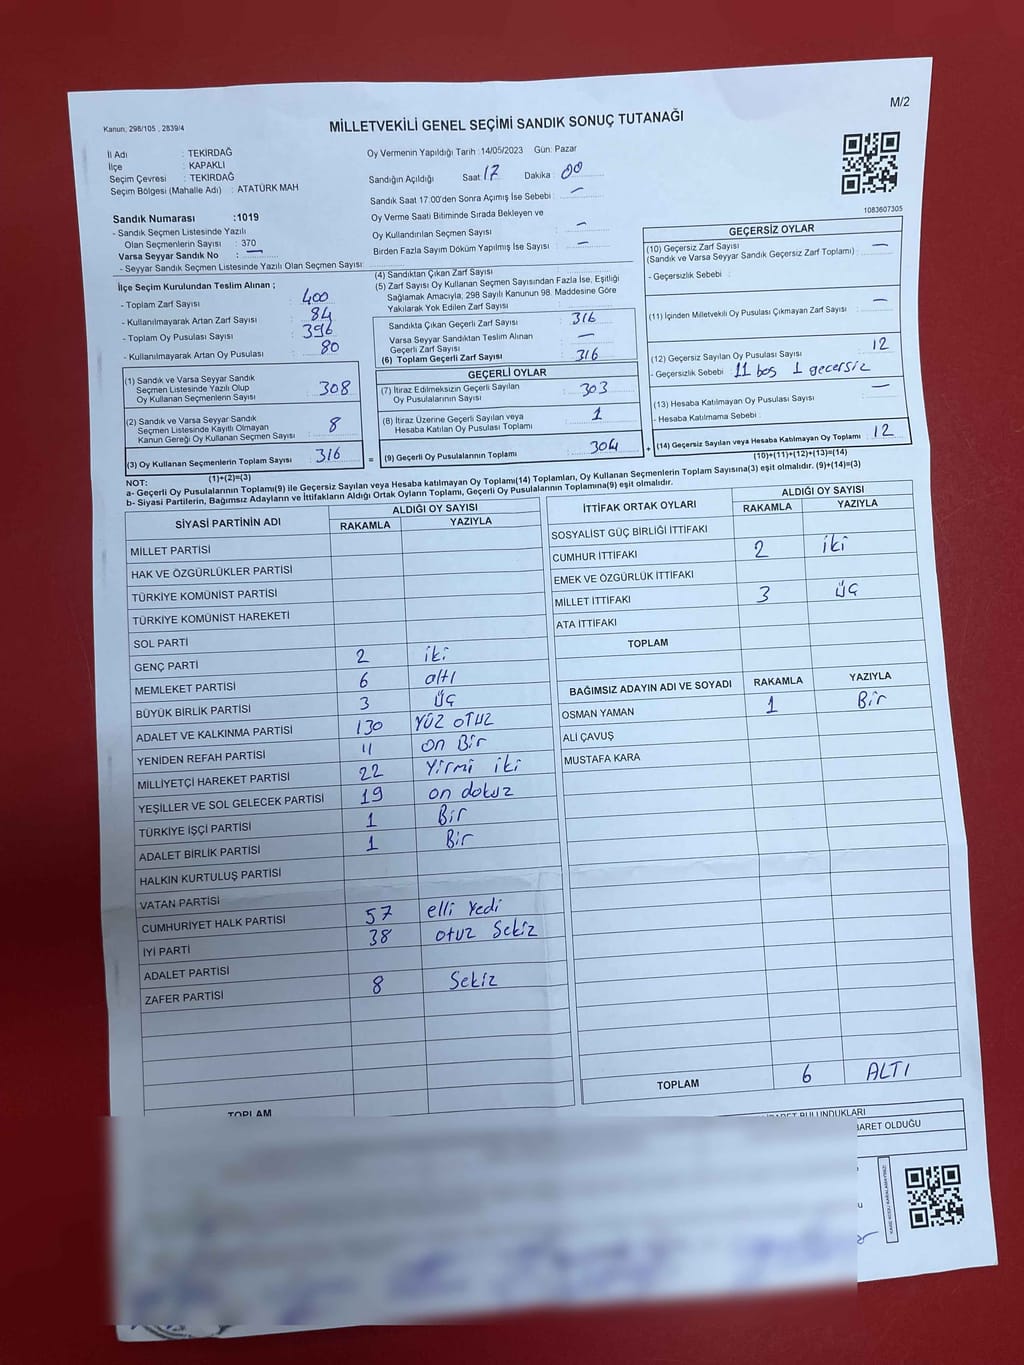 M/2
Kanun; 298/105 , 2839/4
MİLLETVEKİLİ GENEL SEÇİMİ SANDIK SONUÇ TUTANAĞI
İl Adı : TEKİRDAĞ
İlçe : KAPAKLI
Seçim Çevresi : TEKİRDAĞ
Seçim Bölgesi (Mahalle Adı) : ATATÜRK MAH
Oy Vermenin Yapıldığı Tarih : 14/05/2023 Gün: Pazar
Sandığın Açıldığı Saat : 17 Dakika : 00
Sandık Saat 17:00'den Sonra Açımış İse Sebebi : —
Oy Verme Saati Bitiminde Sırada Bekleyen ve
Oy Kullandırılan Seçmen Sayısı : —
Birden Fazla Sayım Döküm Yapılmış İse Sayısı : —
1083607305
Sandık Numarası :1019
- Sandık Seçmen Listesinde Yazılı
Olan Seçmenlerin Sayısı : 370
Varsa Seyyar Sandık No : —
- Seyyar Sandık Seçmen Listesinde Yazılı Olan Seçmen Sayısı:
İlçe Seçim Kurulundan Teslim Alınan ;
- Toplam Zarf Sayısı : 400
- Kullanılmayarak Artan Zarf Sayısı : 84
- Toplam Oy Pusulası Sayısı : 396
- Kullanılmayarak Artan Oy Pusulası : 80
(1) Sandık ve Varsa Seyyar Sandık
Seçmen Listesinde Yazılı Olup
Oy Kullanan Seçmenlerin Sayısı : 308
(2) Sandık ve Varsa Seyyar Sandık
Seçmen Listesinde Kayıtlı Olmayan
Kanun Gereği Oy Kullanan Seçmen Sayısı : 8
(3) Oy Kullanan Seçmenlerin Toplam Sayısı : 316
(1)+(2)=(3)
(4) Sandıktan Çıkan Zarf Sayısı :
(5) Zarf Sayısı Oy Kullanan Seçmen Sayısından Fazla İse, Eşitliği
Sağlamak Amacıyla, 298 Sayılı Kanunun 98. Maddesine Göre
Yakılarak Yok Edilen Zarf Sayısı :
Sandıkta Çıkan Geçerli Zarf Sayısı : 316
Varsa Seyyar Sandıktan Teslim Alınan
Geçerli Zarf Sayısı : —
(6) Toplam Geçerli Zarf Sayısı : 316
GEÇERLİ OYLAR
(7) İtiraz Edilmeksizin Geçerli Sayılan
Oy Pusulalarının Sayısı : 303
(8) İtiraz Üzerine Geçerli Sayılan veya
Hesaba Katılan Oy Pusulası Toplamı : 1
= (9) Geçerli Oy Pusulalarının Toplamı : 304
GEÇERSİZ OYLAR
(10) Geçersiz Zarf Sayısı : —
(Sandık ve Varsa Seyyar Sandık Geçersiz Zarf Toplamı)
- Geçersizlik Sebebi :
(11) İçinden Milletvekili Oy Pusulası Çıkmayan Zarf Sayısı : —
(12) Geçersiz Sayılan Oy Pusulası Sayısı : 12
- Geçersizlik Sebebi : 11 boş 1 geçersiz
(13) Hesaba Katılmayan Oy Pusulası Sayısı : —
- Hesaba Katılmama Sebebi :
+ (14) Geçersiz Sayılan veya Hesaba Katılmayan Oy Toplamı : 12
(10)+(11)+(12)+(13)=(14)
NOT:
a- Geçerli Oy Pusulalarının Toplamı(9) ile Geçersiz Sayılan veya Hesaba katılmayan Oy Toplamı(14) Toplamları, Oy Kullanan Seçmenlerin Toplam Sayısına(3) eşit olmalıdır. (9)+(14)=(3)
b- Siyasi Partilerin, Bağımsız Adayların ve İttifakların Aldığı Ortak Oyların Toplamı, Geçerli Oy Pusulalarının Toplamına(9) eşit olmalıdır.
SİYASİ PARTİNİN ADI ALDIĞI OY SAYISI
RAKAMLA YAZIYLA
MİLLET PARTİSİ
HAK VE ÖZGÜRLÜKLER PARTİSİ
TÜRKİYE KOMÜNİST PARTİSİ
TÜRKİYE KOMÜNİST HAREKETİ
SOL PARTİ
GENÇ PARTİ 2 iki
MEMLEKET PARTİSİ 6 altı
BÜYÜK BİRLİK PARTİSİ 3 üç
ADALET VE KALKINMA PARTİSİ 130 YÜZ OTUZ
YENİDEN REFAH PARTİSİ 11 on Bir
MİLLİYETÇİ HAREKET PARTİSİ 22 Yirmi iki
YEŞİLLER VE SOL GELECEK PARTİSİ 19 on dokuz
TÜRKİYE İŞÇİ PARTİSİ 1 Bir
ADALET BİRLİK PARTİSİ 1 Bir
HALKIN KURTULUŞ PARTİSİ
VATAN PARTİSİ
CUMHURİYET HALK PARTİSİ 57 elli Yedi
İYİ PARTİ 38 otuz Sekiz
ADALET PARTİSİ
ZAFER PARTİSİ 8 Sekiz
TOPLAM
İTTİFAK ORTAK OYLARI ALDIĞI OY SAYISI
RAKAMLA YAZIYLA
SOSYALİST GÜÇ BİRLİĞİ İTTİFAKI
CUMHUR İTTİFAKI 2 iki
EMEK VE ÖZGÜRLÜK İTTİFAKI
MİLLET İTTİFAKI 3 üç
ATA İTTİFAKI
TOPLAM
BAĞIMSIZ ADAYIN ADI VE SOYADI RAKAMLA YAZIYLA
OSMAN YAMAN 1 Bir
ALİ ÇAVUŞ
MUSTAFA KARA
TOPLAM 6 ALTI
BULUNDUKLARI
OLDUĞU